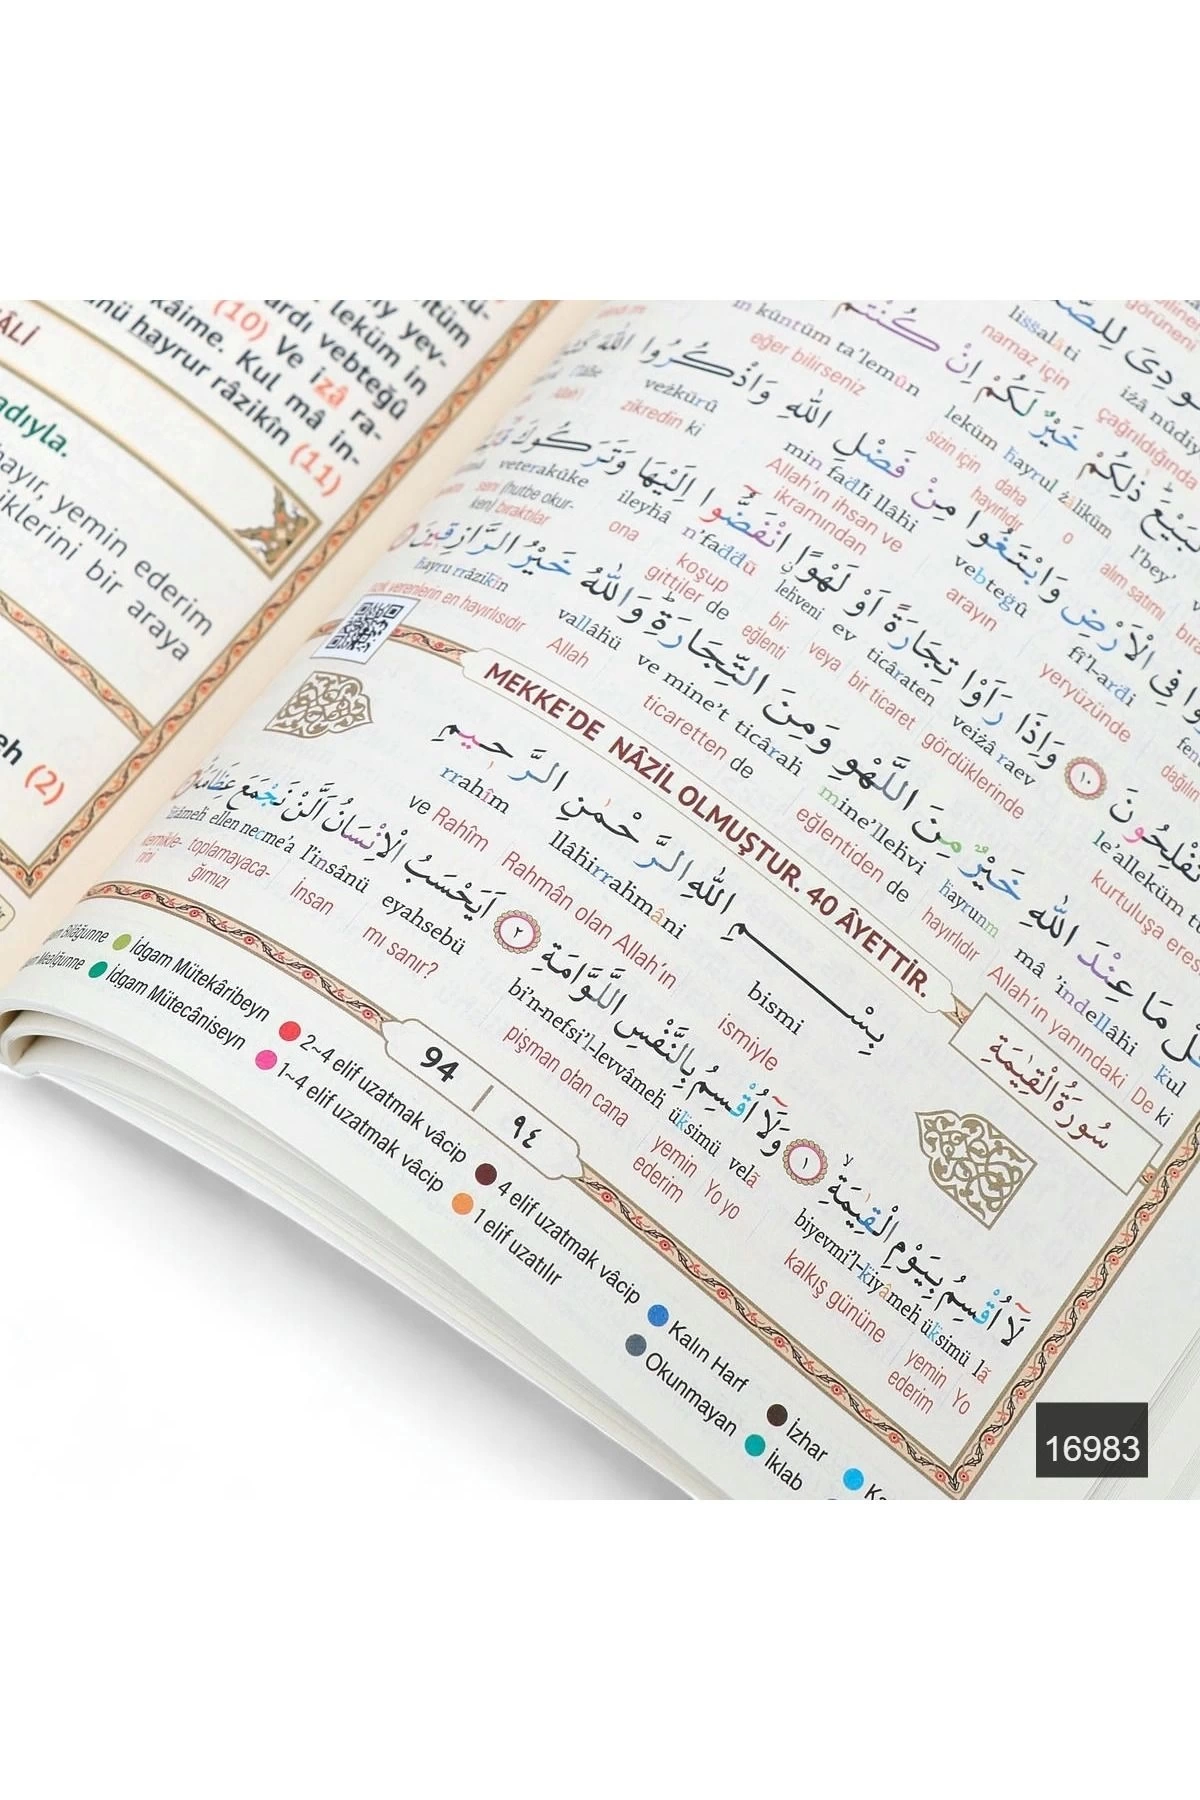 ÂLİ
adıyla.
hayır, yemin ederim
iklerini bir araya
(2)
leküm in
ardı vebteğû
(10) Ve izâ ra-
kâime. Kul mâ in-
hayrur râzikîn (11)
لِلصَّ
lissalâti
namaz için
görüneni
كُنْتُمْ
اِنْ
لَكُمْ
خَيْرٌ
ذٰلِكُمْ
in küntüm ta'lemûn
leküm
hayrul
żâliküm
l'bey'
eğer bilirseniz
sizin için
daha hayırlıdır
o
alım satımı
çağrıldığında
وَاذْكُرُوا اللّٰهَ
مِنْ فَضْلِ اللّٰهِ
وَابْتَغُوا
فِي الْاَرْضِ
vežkürû
min fadli llâhi
vebteğû
fi'l-ardi
zikredin ki
Allah'ın ihsan ve ikramından
arayın
yeryüzünde
وَاِذَا رَاَوْا تِجَارَةً اَوْ لَهْوًا انْفَضُّوا اِلَيْهَا وَتَرَكُوكَ
veiżâ raev
ticâraten
ev
lehveni
n'faddû
ileyhâ
veterakûke
gördüklerinde
bir ticaret
veya
bir eğlenti
koşup gittiler de
ona
seni (hutbe okur-ken) bıraktılar
تُفْلِحُونَ ١٠
le'alleküm
kurtuluşa
قُلْ مَا عِنْدَ اللّٰهِ خَيْرٌ مِنَ اللَّهْوِ وَمِنَ التِّجَارَةِ وَاللّٰهُ خَيْرُ الرَّازِقِينَ
kul
mâ 'indellâhi
hayrunm
mine'llehvi
ve mine't ticârah
vallâhü
hayru rrâzikîn
De ki
Allah'ın yanındaki
hayırlıdır
eğlentiden de
ticaretten de
Allah
verenlerin en hayırlısıdır
سُورَةُ الْقِيٰمَةِ
MEKKE'DE NÂZİL OLMUŞTUR. 40 ÂYETTİR.
بِسْمِ اللّٰهِ الرَّحْمٰنِ الرَّحِيمِ
bismi
llâhirrahmâni
rrahîm
ismiyle
Rahmân olan Allah'ın
ve Rahîm
لَٓا اُقْسِمُ بِيَوْمِ الْقِيٰمَةِ ١ وَلَٓا اُقْسِمُ بِالنَّفْسِ اللَّوَّامَةِ ٢ اَيَحْسَبُ الْاِنْسَانُ اَلَّنْ نَجْمَعَ عِظَامَهُ
lâ
üksimü
biyevmi'l-kiyâmeh
velâ
üksimü
bi'n-nefsi'l-levvâmeh
eyahsebü
l'insânü
ellen necme'a
Yo
yemin ederim
kalkış gününe
Yo yo
yemin ederim
pişman olan cana
mı sanır?
İnsan
toplamayaca-ğımızı
kemikle-rini
94 | ٩٤
İdgam Mütekâribeyn
İdgam Mütecâniseyn
2~4 elif uzatmak vâcip
1~4 elif uzatmak vâcip
4 elif uzatmak vâcip
1 elif uzatılır
Kalın Harf
Okunmayan
İzhar
İklab
16983